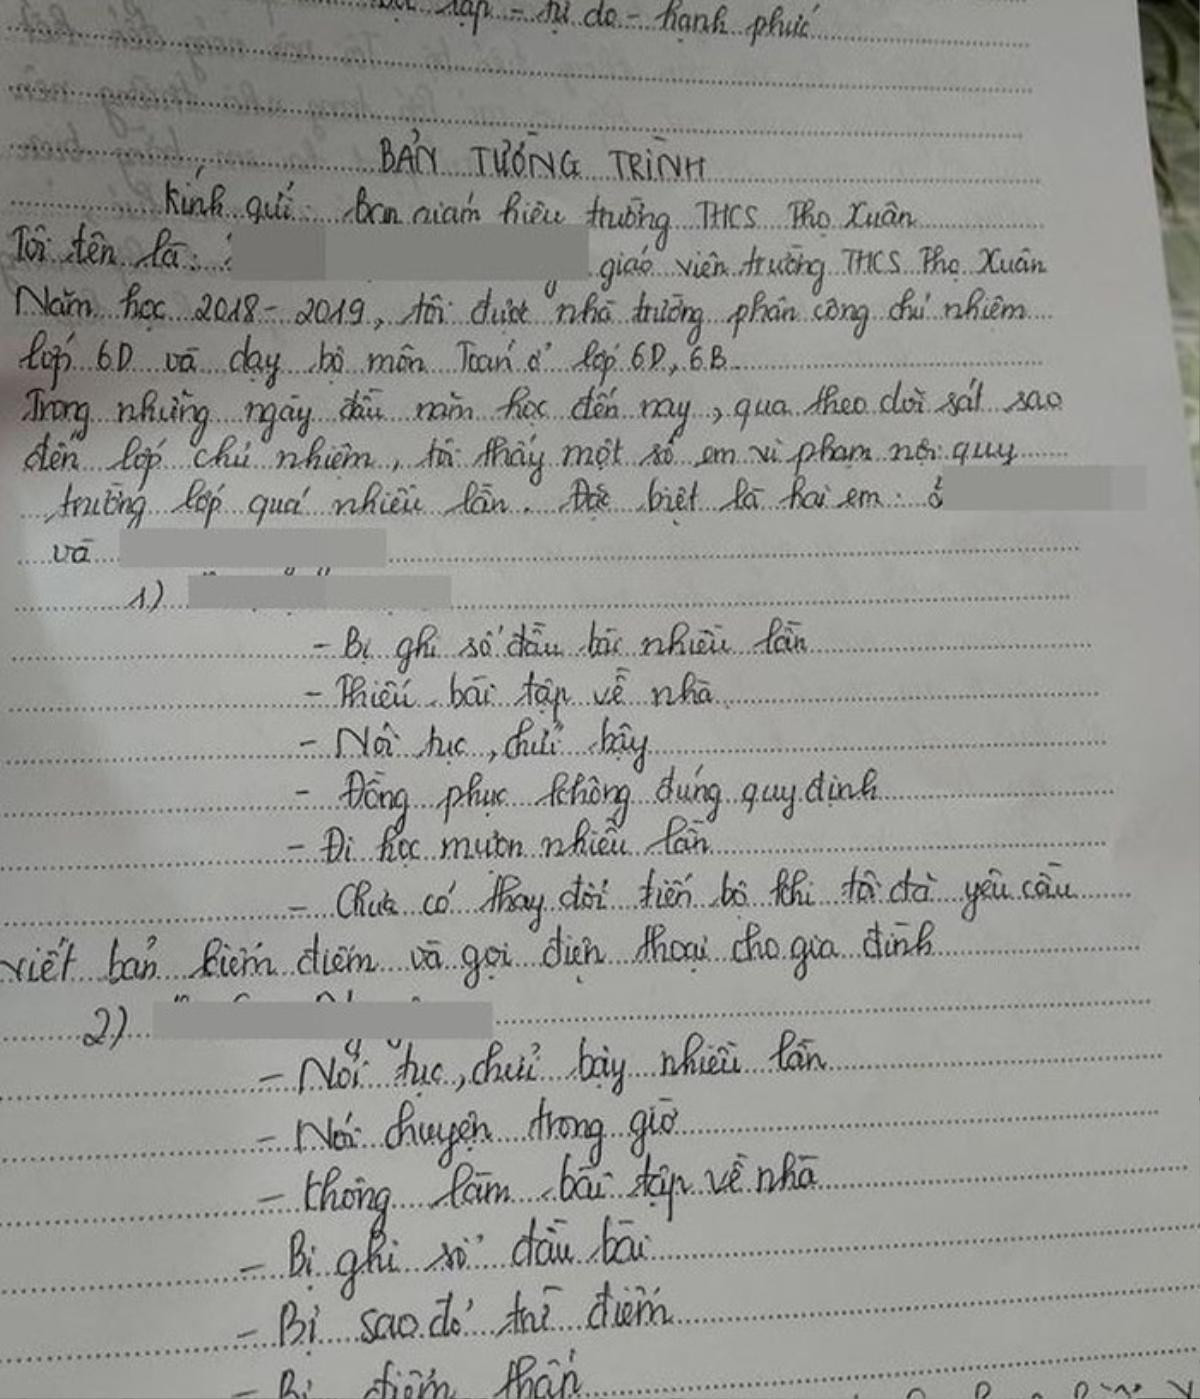 lập - tự do - hạnh phúc
BẢN TƯỜNG TRÌNH
Kính gửi: ban giám hiệu trường THCS Thọ Xuân
Tôi tên là: giáo viên trường THCS Thọ Xuân
Năm học 2018 - 2019, tôi được nhà trường phân công chủ nhiệm
lớp 6D và dạy bộ môn Toán ở lớp 6D, 6B
Trong những ngày đầu năm học đến nay, qua theo dõi sát sao
đến lớp chủ nhiệm, tôi thấy một số em vi phạm nội quy
trường lớp quá nhiều lần. Đặc biệt là hai em:
và
1)
- Bị ghi sổ đầu bài nhiều lần
- Thiếu bài tập về nhà
- Nói tục, chửi bậy
- Đồng phục không đúng quy định
- Đi học muộn nhiều lần
- Chưa có thay đổi tiến bộ khi tôi đã yêu cầu
viết bản kiểm điểm và gọi điện thoại cho gia đình
2)
- Nói tục, chửi bậy nhiều lần
- Nói chuyện trong giờ
- Không làm bài tập về nhà
- Bị ghi sổ đầu bài
- Bị sao đỏ trừ điểm
- Bị điểm